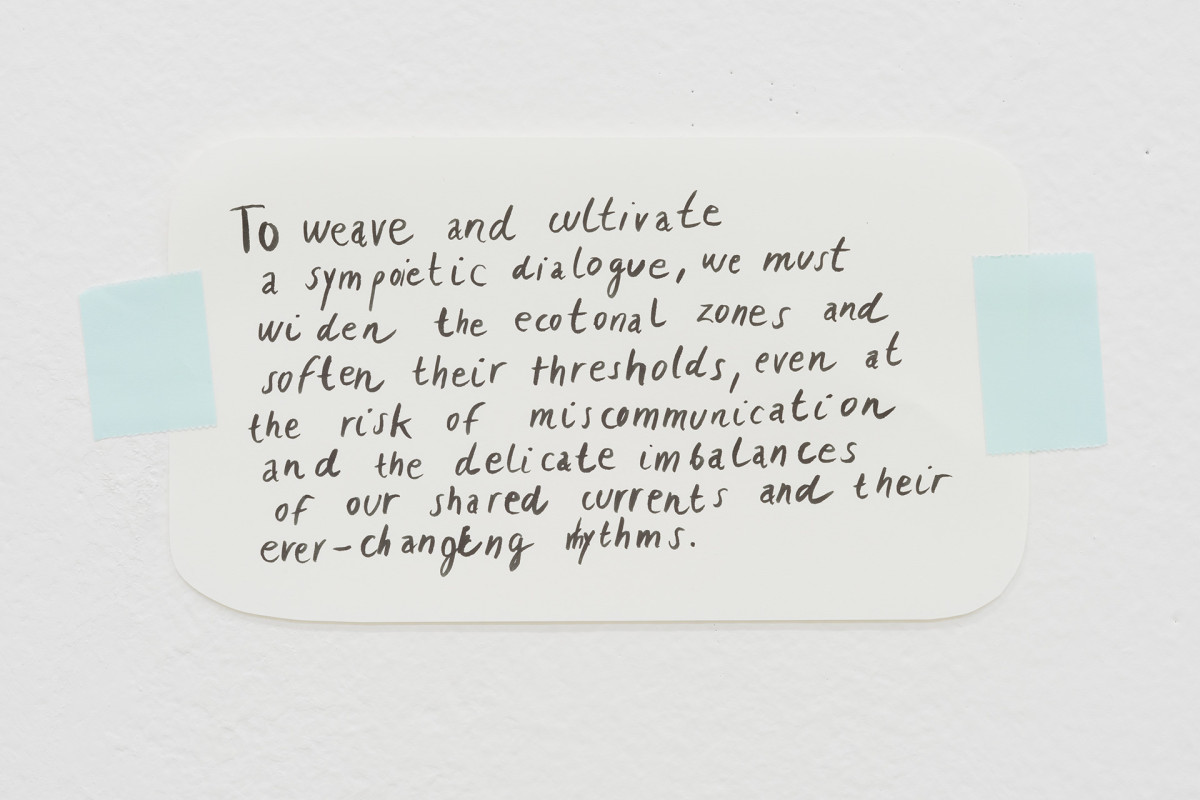 To weave and cultivate
a sympoietic dialogue, we must
widen the ecotonal zones and
soften their thresholds, even at
the risk of miscommunication
and the delicate imbalances
of our shared currents and their
ever-changing rhythms.